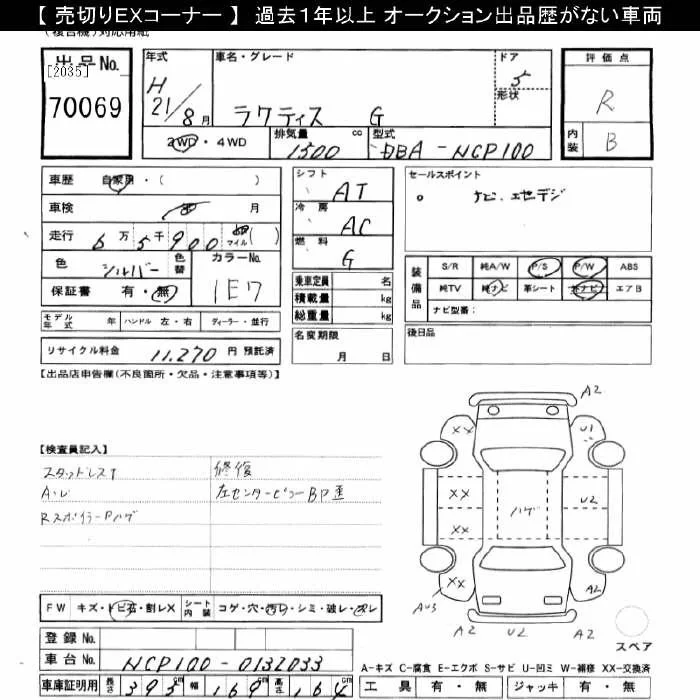 【 売切りEXコーナー 】 過去1年以上 オークション出品歴がない車両
(複合機)対応用紙
出品No.
[2035]
70069
年式
H
21/8月
車名・グレード
ラクティス G
ドア
5
形状
評価点
R
内装
B
2WD・4WD
排気量
1500
cc
型式
DBA-NCP100
車歴 自家用・( )
車検 月
走行 6万5千900 マイル( )
色 シルバー
色替
カラーNo.
1E7
保証書 有・無
シフト
AT
冷房
AC
燃料
G
乗車定員 名
積載量 kg
総重量 kg
セールスポイント
ナビ、地デジ
装備品
S/R 純A/W P/S P/W ABS
純TV 純ナビ 革シート 社ナビ エアB
ナビ型番:
モデル年式 年 ハンドル 左・右 ディーラー・並行
リサイクル料金 11,270 円 預託済
名変期限
月 日
後日品
【出品店申告欄(不良箇所・欠品・注意事項等)】
【検査員記入】
スタッドレスT
A・U
Rスポイラー Pハゲ
修復
左センターピラーBP歪
A2
XX
U1
A2
XX
XX
ハゲ
U2
XX
AU3
A2
A2
U2
A2
スペア
FW キズ・トビ石・割レX シート内装 コゲ・穴・切り・シミ・破レ・スレ
登録No.
車台No. NCP100-0132033
車庫証明用 長さ 395 cm 幅 169 cm 高さ 164 cm
A-キズ C-腐食 E-エクボ S-サビ U-凹ミ W-補修 XX-交換済
工具 有・無 ジャッキ 有・無